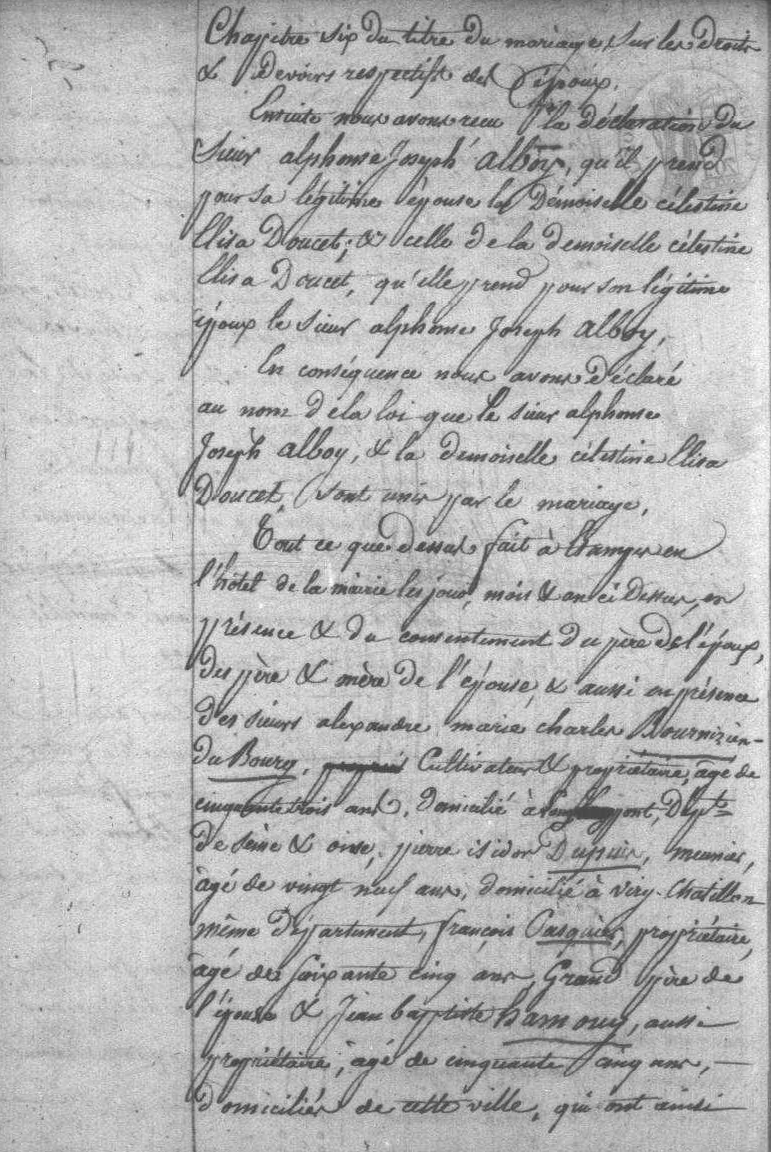 Chapitre six du titre du mariage, sur les droits
& devoirs respectifs des époux.
Ensuite nous avons recu la déclaration du
sieur alphonse Joseph alboy, qu'il prend
pour sa légitime épouse la Démoiselle célestine
Elisa Doucet; & celle de la demoiselle célestine
Elisa Doucet, qu'elle prend pour son légitime
époux le sieur alphonse Joseph alboy,
En conséquence nous avons déclaré
au nom de la loi que le sieur alphonse
Joseph alboy, & la demoiselle célestine Elisa
Doucet, sont unis par le mariage,
Tout ce que dessus fait à Etampes en
l'hôtel de la mairie les jour, mois & an ci dessus, en
présence & du consentement du père de l'époux,
des père & mère de l'épouse, & aussi en présence
des sieurs alexandre marie charles
du Bourg, Cultivateur & propriétaire, âgé de
cinquante trois ans, domicilié à Dépt.
de seine & oise, pierre isidor Dupuis, meunier,
âgé de vingt neuf ans, domicilié à viry-Chatillon
même département, françois Pasquier, propriétaire,
âgé de soixante cinq ans, Grand père de
l'épouse & Jean baptiste hamouy, aussi
propriétaire, âgé de cinquante cinq ans,
domiciliés de cette ville, qui ont ainsi